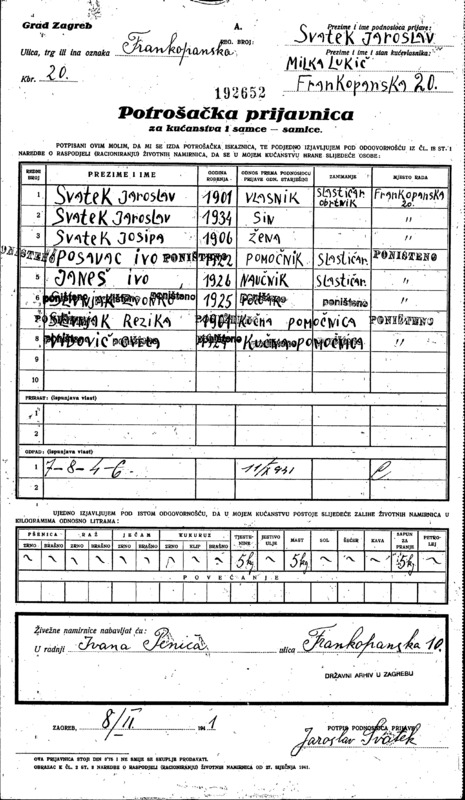 Grad Zagreb
A.
Prezime i ime podnosioca prijave:
Svatek Jaroslav
Ulica, trg ili ina oznaka Frankopanska
REG. BROJ:
Prezime i ime i stan kućevlasnika:
Milka Lukić
Kbr. 20.
Frankopanska 20.
192652
Potrošačka prijavnica
za kućanstva i samce — samice.
POTPISANI OVIM MOLIM, DA MI SE IZDA POTROŠAČKA ISKAZNICA, TE PODJEDNO IZJAVLJUJEM POD ODGOVORNOŠĆU IZ ČL. 18 ST. 1
NAREDBE O RASPODJELI (RACIONIRANJU) ŽIVOTNIH NAMIRNICA, DA SE U MOJEM KUĆANSTVU HRANE SLIJEDEĆE OSOBE:
REDNI BROJ PREZIME I IME GODINA ROĐENJA ODNOS PREMA PODNOSIOCU PRIJAVE ODN. STARJEŠINI ZANIMANJE MJESTO RADA
1 Svatek Jaroslav 1901 vlasnik slastičar obrtnik Frankopanska 20.
2 Svatek Jaroslav 1934 sin "
3 Svatek Josipa 1906 žena "
PONIŠTENO Posavac Ivo PONIŠTENO pomoćnik slastičar. PONIŠTENO
5 Janeš Ivo 1926 naučnik slastičar. "
6 poništeno poništeno 1925 poništeno "
Rezika kućna pomoćnica PONIŠTENO
8 kućna pomoćnica "
9
10
PRIRAST: (ispunjava vlast)
1
2
ODPAD: (ispunjava vlast)
1 7-8-4-6.
2
UJEDNO IZJAVLJUJEM POD ISTOM ODGOVORNOŠĆU, DA U MOJEM KUĆANSTVU POSTOJE SLIJEDEĆE ZALIHE ŽIVOTNIH NAMIRNICA U
KILOGRAMIMA ODNOSNO LITRAMA:
PŠENICA RAŽ JEČAM KUKURUZ TJESTENINE JESTIVO ULJE MAST SOL ŠEĆER KAVA SAPUN ZA PRANJE PETROLEJ
ZRNO BRAŠNO ZRNO BRAŠNO ZRNO BRAŠNO ZRNO KLIP BRAŠNO
5 kg 5 kg 5 kg
POVEĆANJE
Živežne namirnice nabavljat ću:
U radnji Ivana Penića ulica Frankopanska 10.
DRŽAVNI ARHIV U ZAGREBU
ZAGREB, 8/II 1941
POTPIS PODNOSIOCA PRIJAVE
Jaroslav Svatek
OVA PRIJAVNICA STOJI DIN 0'75 I NE SMIJE SE SKUPLJE PRODAVATI.
OBRAZAC K ČL. 2 ST. 2 NAREDBE O RASPODJELI (RACIONIRANJU) ŽIVOTNIH NAMIRNICA OD 27. SIJEČNJA 1941.